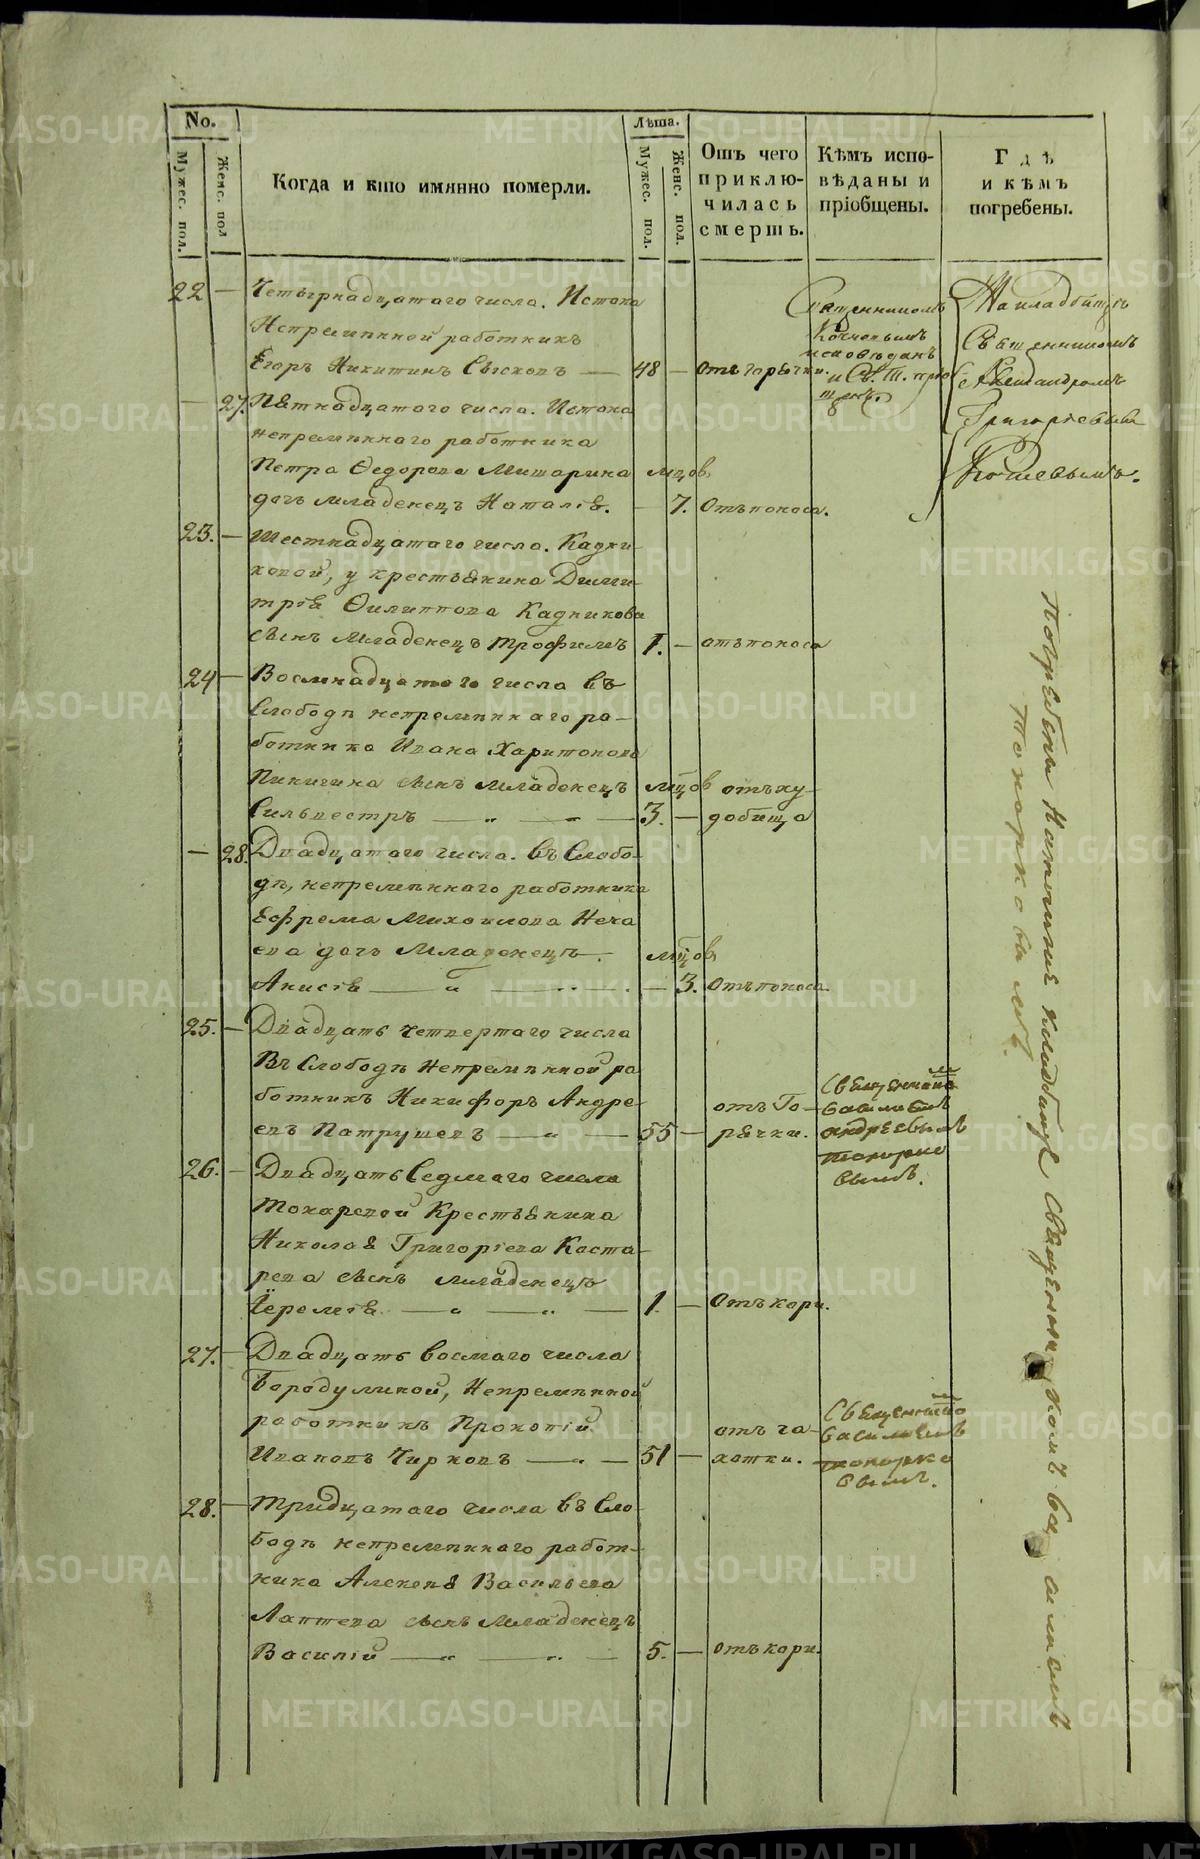 No.
Мужес. пол.
Женс. пол
Когда и кто имянно померли.
Лѣта.
Мужес. пол.
Женс. пол.
Отъ чего
приклю-
чилась
смерть.
Кѣмъ испо-
вѣданы и
пріобщены.
Гдѣ
и кѣмъ
погребены.
22 — Четырнадцатаго числа. Истока
Непремѣнной работникъ
Егоръ Никитинъ Сысковъ — 48 — отъ горячки.
Священникомъ
исповѣданъ
и Св. Т.
На кладбищѣ
Священникомъ
Александромъ
Григорьевымъ
— 27. Пятнадцатаго числа. Истока
непремѣннаго работника
Петра Ѳедорова Мишарина мцов
дочь младенецъ Наталія. — 7. Отъ поноса.
23. — Шестнадцатаго числа. Кадни-
ковой, у крестьянина Дими-
трія Филиппова Кадникова
сынъ младенецъ Трофимъ 1. — отъ поноса
24 — Восмнадцатаго числа въ
Слободѣ непремѣннаго ра-
ботника Ивана Харитонова
Пиничина сынъ младенецъ мцов отъ ху-
Сильвестръ — „ — „ — 3. — добища
— 28. Двадцатаго числа. въ Слобо-
дѣ, непремѣннаго работника
Ефрема Михаилова Неча
ева дочь Младенецъ. мцов
Анисія — „ — — 3. Отъ поноса.
25. — Двадцать четвертаго числа
Въ Слободѣ Непремѣнной ра
ботникъ Никифоръ Андре-
евъ Патрушевъ — „ — 55 — отъ Го-
рячки.
Священнико м
Василіемъ
Андреевымъ
Топорко
вымъ.
26. — Двадцать Седмаго числа
Токаревой Крестьянина
Николая Григорьева Коста-
рева сынъ младенецъ
Іеремія — „ — „ — 1. — Отъ кори.
27. — Двадцать восмаго числа
Бородулиной, Непремѣнной
работникъ Прокопій
Ивановъ Чирковъ — „ — 51 — отъ ча-
хотки.
Священнико м
Василіемъ
Топорко
вымъ.
28. — Тридцатаго числа въ Сло-
бодѣ непремѣннаго работ-
ника Алексея Васильева
Лаптева сынъ младенецъ
Василій — „ — „ — 5. — отъ кори.
Погребены на кладбищѣ Священникомъ Василіемъ
Топорковымъ.
METRIKI.GASO-URAL.RU